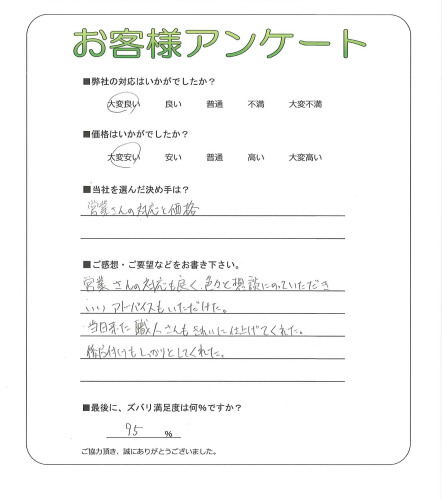 お客様アンケート
■弊社の対応はいかがでしたか？
大変良い 良い 普通 不満 大変不満
■価格はいかがでしたか？
大変安い 安い 普通 高い 大変高い
■当社を選んだ決め手は？
営業さんの対応と価格
■ご感想・ご要望などをお書き下さい。
営業さんの対応も良く、色々と相談にのっていただき
いいアドバイスもいただけた。
当日来た職人さんもきれいに仕上げてくれた。
後片付けもしっかりとしてくれた。
■最後に、ズバリ満足度は何％ですか？
95 ％
ご協力頂き、誠にありがとうございました。